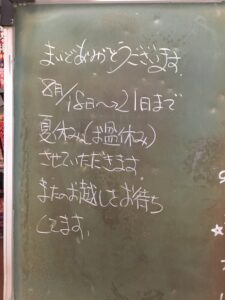 まいどありがとうございます
8月18日〜21日まで
夏休み(お盆休み)
させていただきます
またのお越しをお待ち
してます.